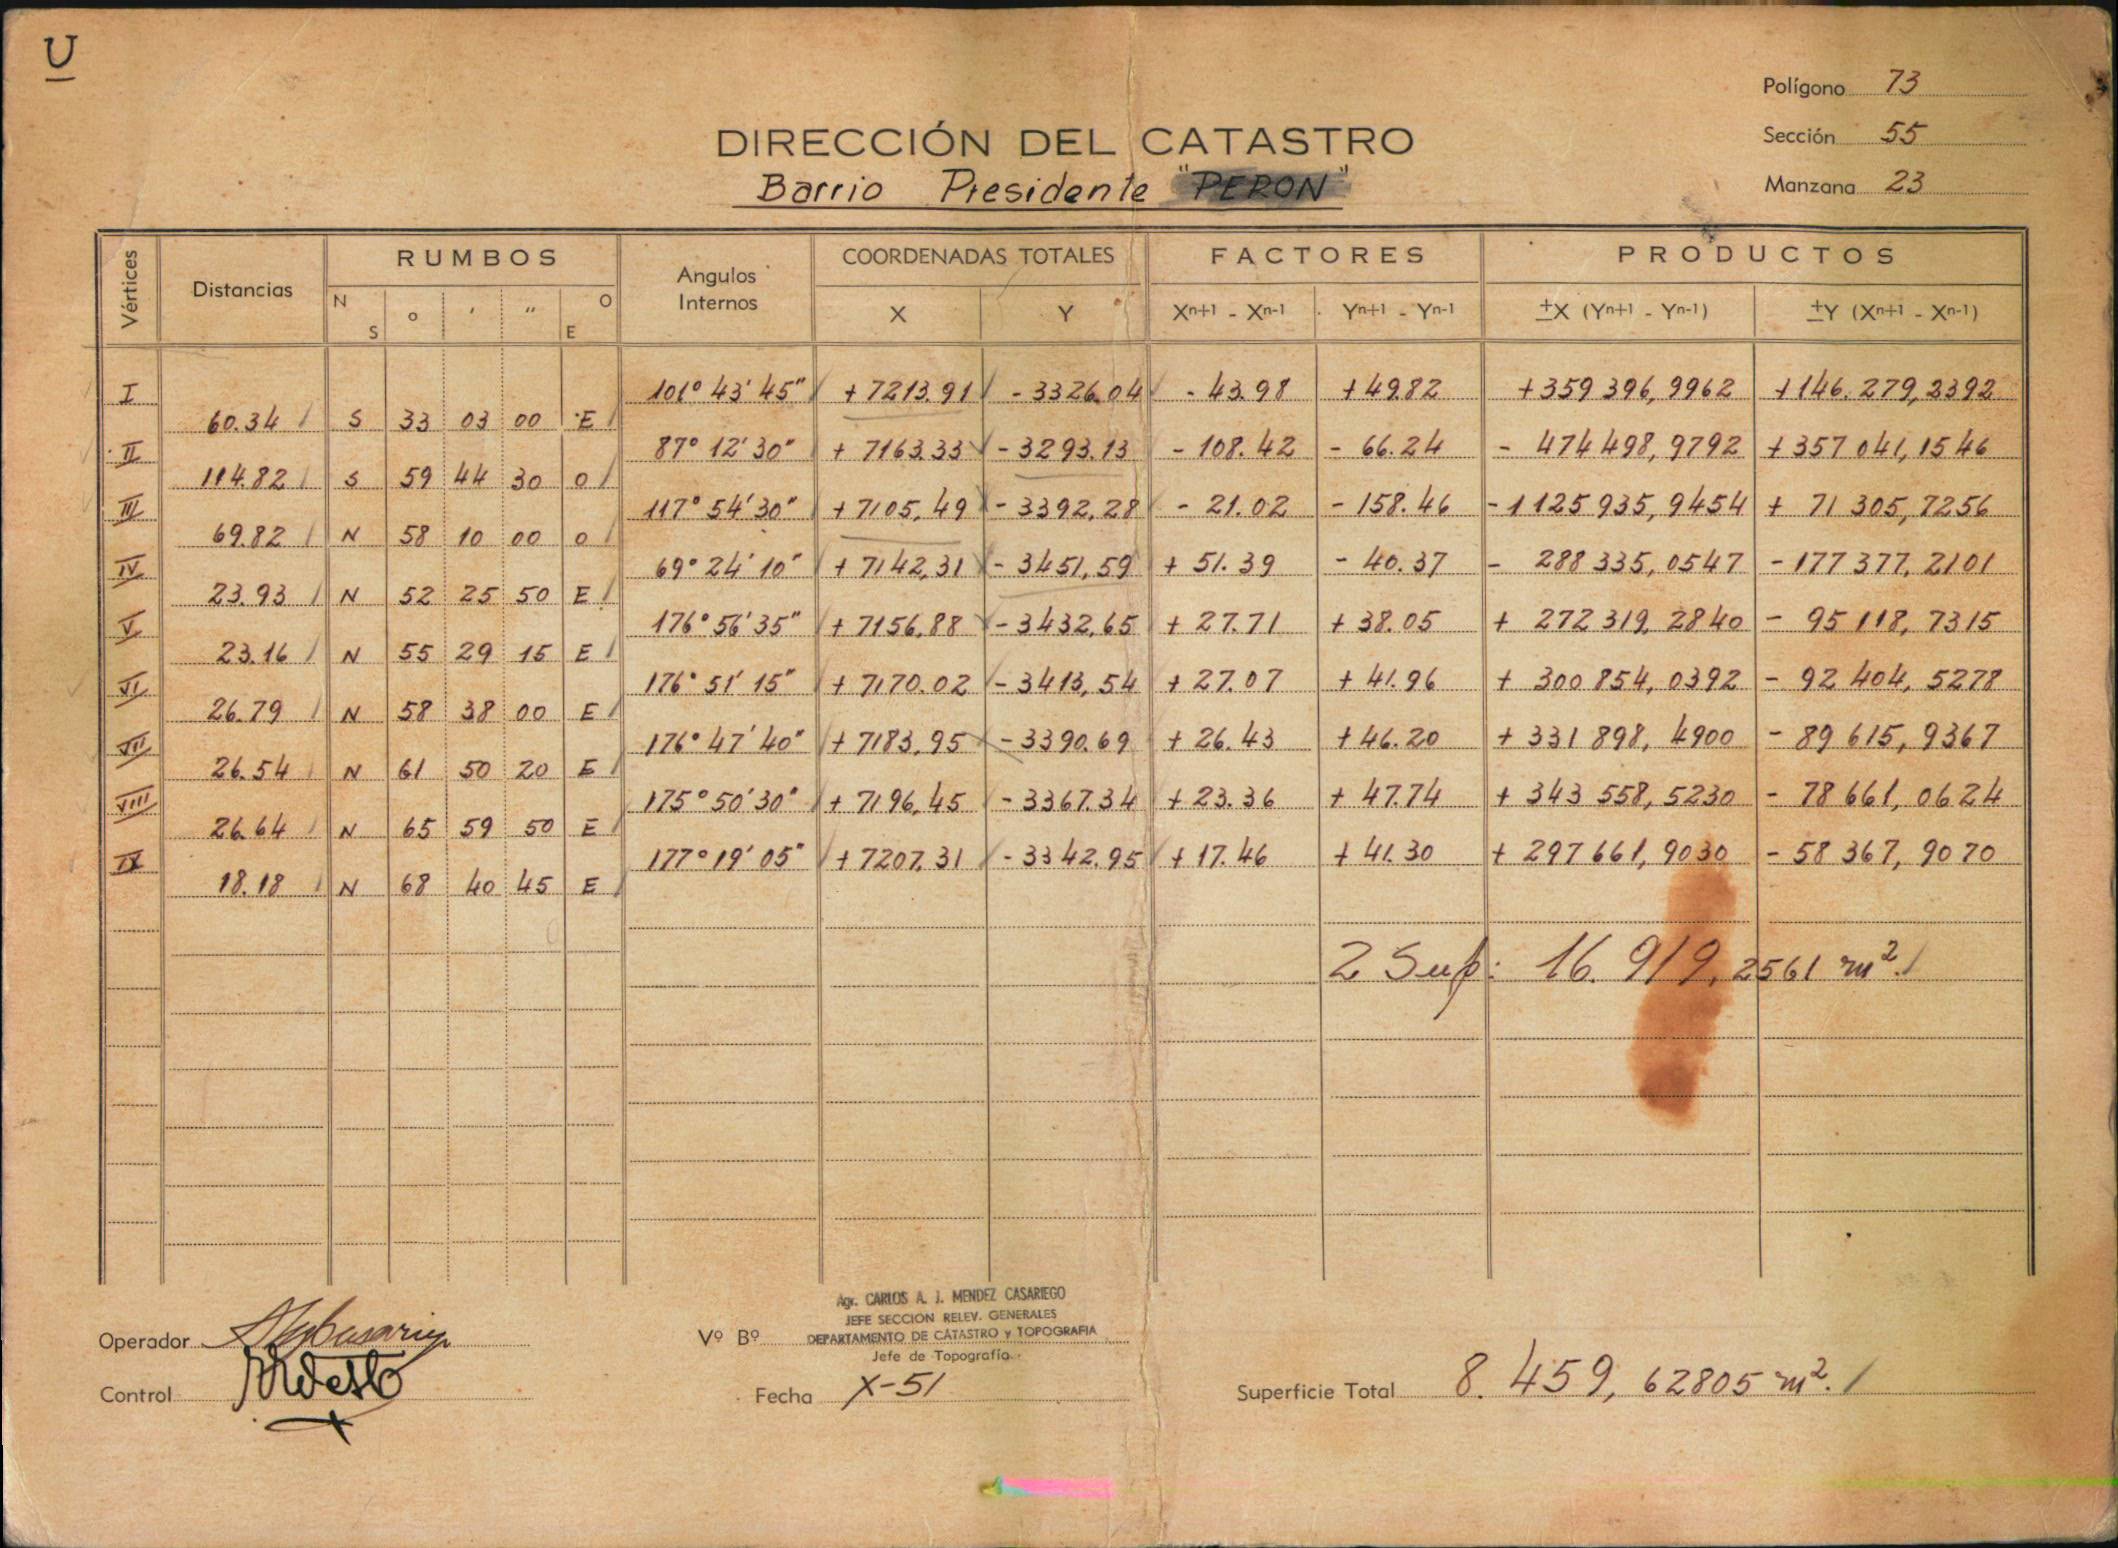 U
Polígono 73
Sección 55
Manzana 23
DIRECCIÓN DEL CATASTRO
Barrio Presidente "PERON"
Vértices Distancias RUMBOS Angulos Internos COORDENADAS TOTALES FACTORES PRODUCTOS
N S ° ' " O E X Y Xn+1 - Xn-1 Yn+1 - Yn-1 ±X (Yn+1 - Yn-1) ±Y (Xn+1 - Xn-1)
I 101° 43' 45" + 7213.91 - 3326.04 - 43.98 + 49.82 + 359 396,9962 + 146.279,2392
60.34 S 33 03 00 E
II 87° 12' 30" + 7163.33 - 3293.13 - 108.42 - 66.24 - 474 498,9792 + 357 041,1546
114.82 S 59 44 30 O
III 117° 54' 30" + 7105,49 - 3392,28 - 21.02 - 158.46 - 1 125 935,9454 + 71 305,7256
69.82 N 58 10 00 O
IV 69° 24' 10" + 7142,31 - 3451,59 + 51.39 - 40.37 - 288 335,0547 - 177 377,2101
23.93 N 52 25 50 E
V 176° 56' 35" + 7156,88 - 3432,65 + 27.71 + 38.05 + 272 319,2840 - 95 118,7315
23.16 N 55 29 15 E
VI 176° 51' 15" + 7170.02 - 3413,54 + 27.07 + 41.96 + 300 854,0392 - 92 404,5278
26.79 N 58 38 00 E
VII 176° 47' 40" + 7183,95 - 3390.69 + 26.43 + 46.20 + 331 898,4900 - 89 615,9367
26.54 N 61 50 20 E
VIII 175° 50' 30" + 7196,45 - 3367.34 + 23.36 + 47.74 + 343 558,5230 - 78 661,0624
26.64 N 65 59 50 E
IX 177° 19' 05" + 7207,31 - 3342.95 + 17.46 + 41.30 + 297 661,9030 - 58 367,9070
18.18 N 68 40 45 E
2 Sup: 16.919,2561 m².
Agr. CARLOS A. J. MENDEZ CASARIEGO
JEFE SECCION RELEV. GENERALES
Operador Vº Bº DEPARTAMENTO DE CATASTRO y TOPOGRAFIA
Jefe de Topografía
Control Fecha X-51 Superficie Total 8.459,62805 m².